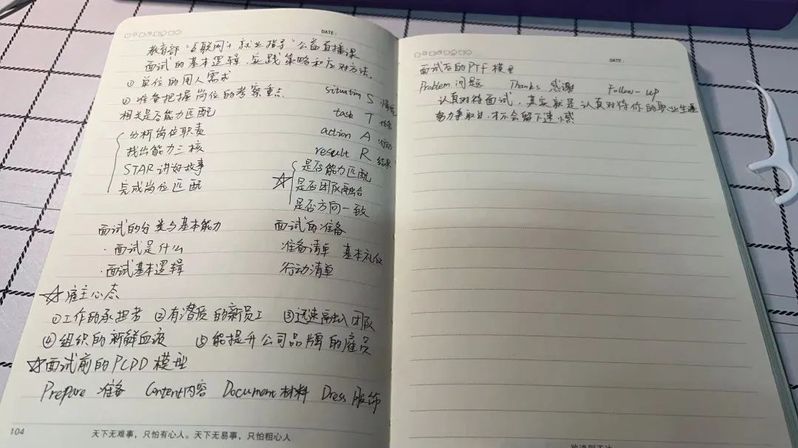 DATE:
教育部"互联网+就业指导"公益直播课
面试的基本逻辑、实践策略和应对方法。
① 单位的用人需求
② 准备把握岗位的考察重点
相关是否能力匹配
分析岗位职责
找出能力三核
STAR讲好故事
完成岗位匹配
situation S 情境
task T 任务
action A 行动
result R 结果
☆ 是否能力匹配
是否团队融合
是否方向一致
面试的分类与基本能力
·面试是什么
·面试基本逻辑
面试的准备
准备清单 基本礼仪
行动清单
☆雇主心态
①工作的承担者 ②有潜质的新员工 ③迅速融入团队
④组织的新鲜血液 ⑤能提升公司品牌的雇员
☆面试前的PCDD模型
Prepare 准备 Content内容 Document材料 Dress服饰
104 天下无难事,只怕有心人。天下无易事,只怕粗心人
DATE:
面试后的PTF模型
Problem 问题 Thanks 感谢 Follow-up
认真对待面试,其实就是认真对待你的职业生涯
努力争取且不会留下遗憾